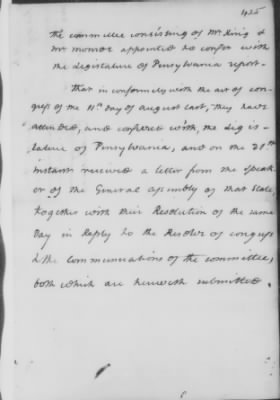 425
the committee consisting of Mr King &
Mr Monroe appointed to confer with
the Legislature of Pensylvania report—
That in conformity with the act of con-
gress of the 11th day of august last, they have
attended, and conferred with, the Legis-
lature of Pensylvania, and on the 21st
instant received a letter from the Speak
er of the General assembly of that State
together with their Resolution of the same
day in Reply to the Resolve of congress
& the communications of the committee,
both which are herewith submitted.